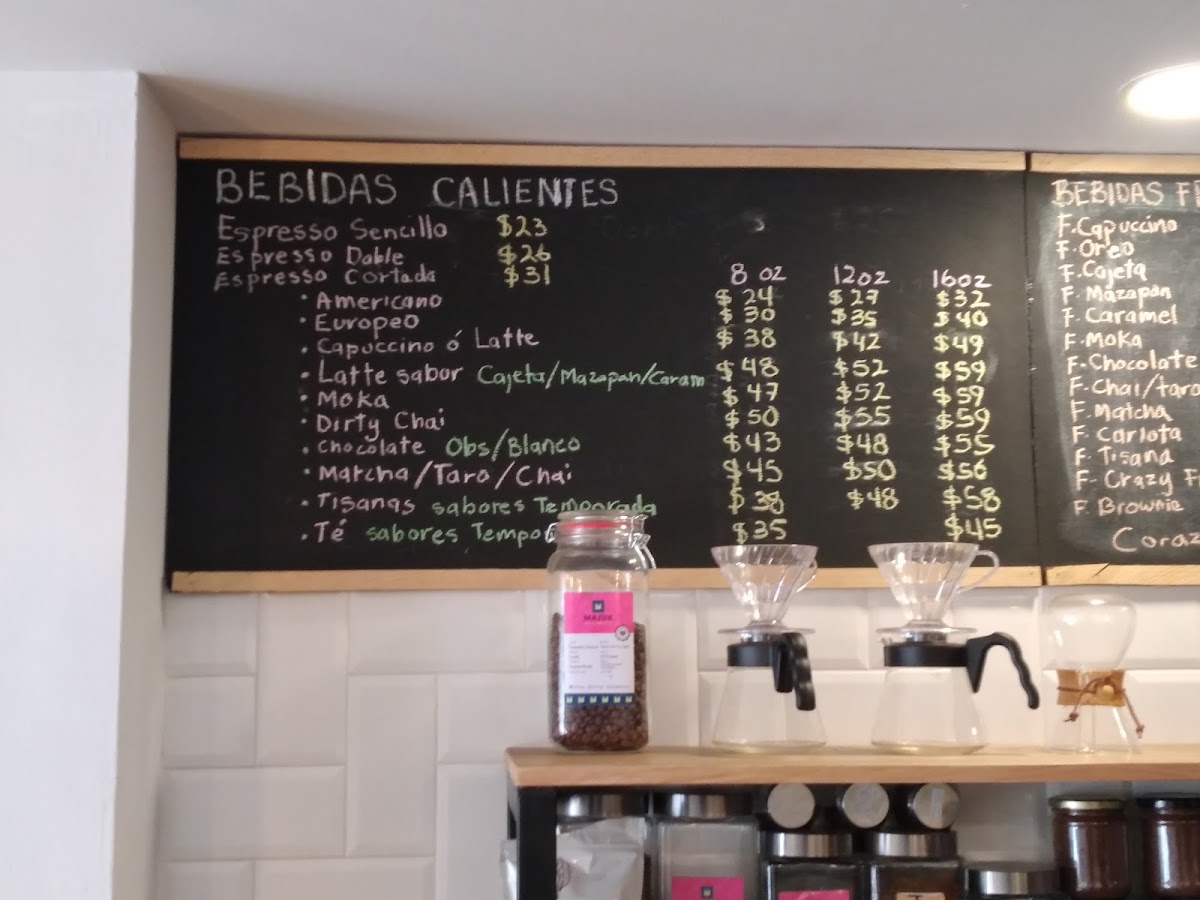 BEBIDAS CALIENTES
Espresso Sencillo $23
Espresso Doble $26
Espresso Cortado $31
8 oz 12oz 16oz
· Americano $24 $27 $32
· Europeo $30 $35 $40
· Capuccino ó Latte $38 $42 $49
· Latte sabor Cajeta/Mazapan/Caram $48 $52 $59
· Moka $47 $52 $59
· Dirty Chai $50 $55 $59
· Chocolate Obs/Blanco $43 $48 $55
· Matcha/Taro/Chai $45 $50 $56
· Tisanas sabores Temporada $38 $48 $58
· Té sabores Tempo $35 $45
BEBIDAS F
F. Capuccino
F. Oreo
F. Cajeta
F. Mazapan
F. Caramel
F. Moka
F. Chocolate
F. Chai/taro
F. Matcha
F. Carlota
F. Tisana
F. Crazy F
F. Brownie
Coraz